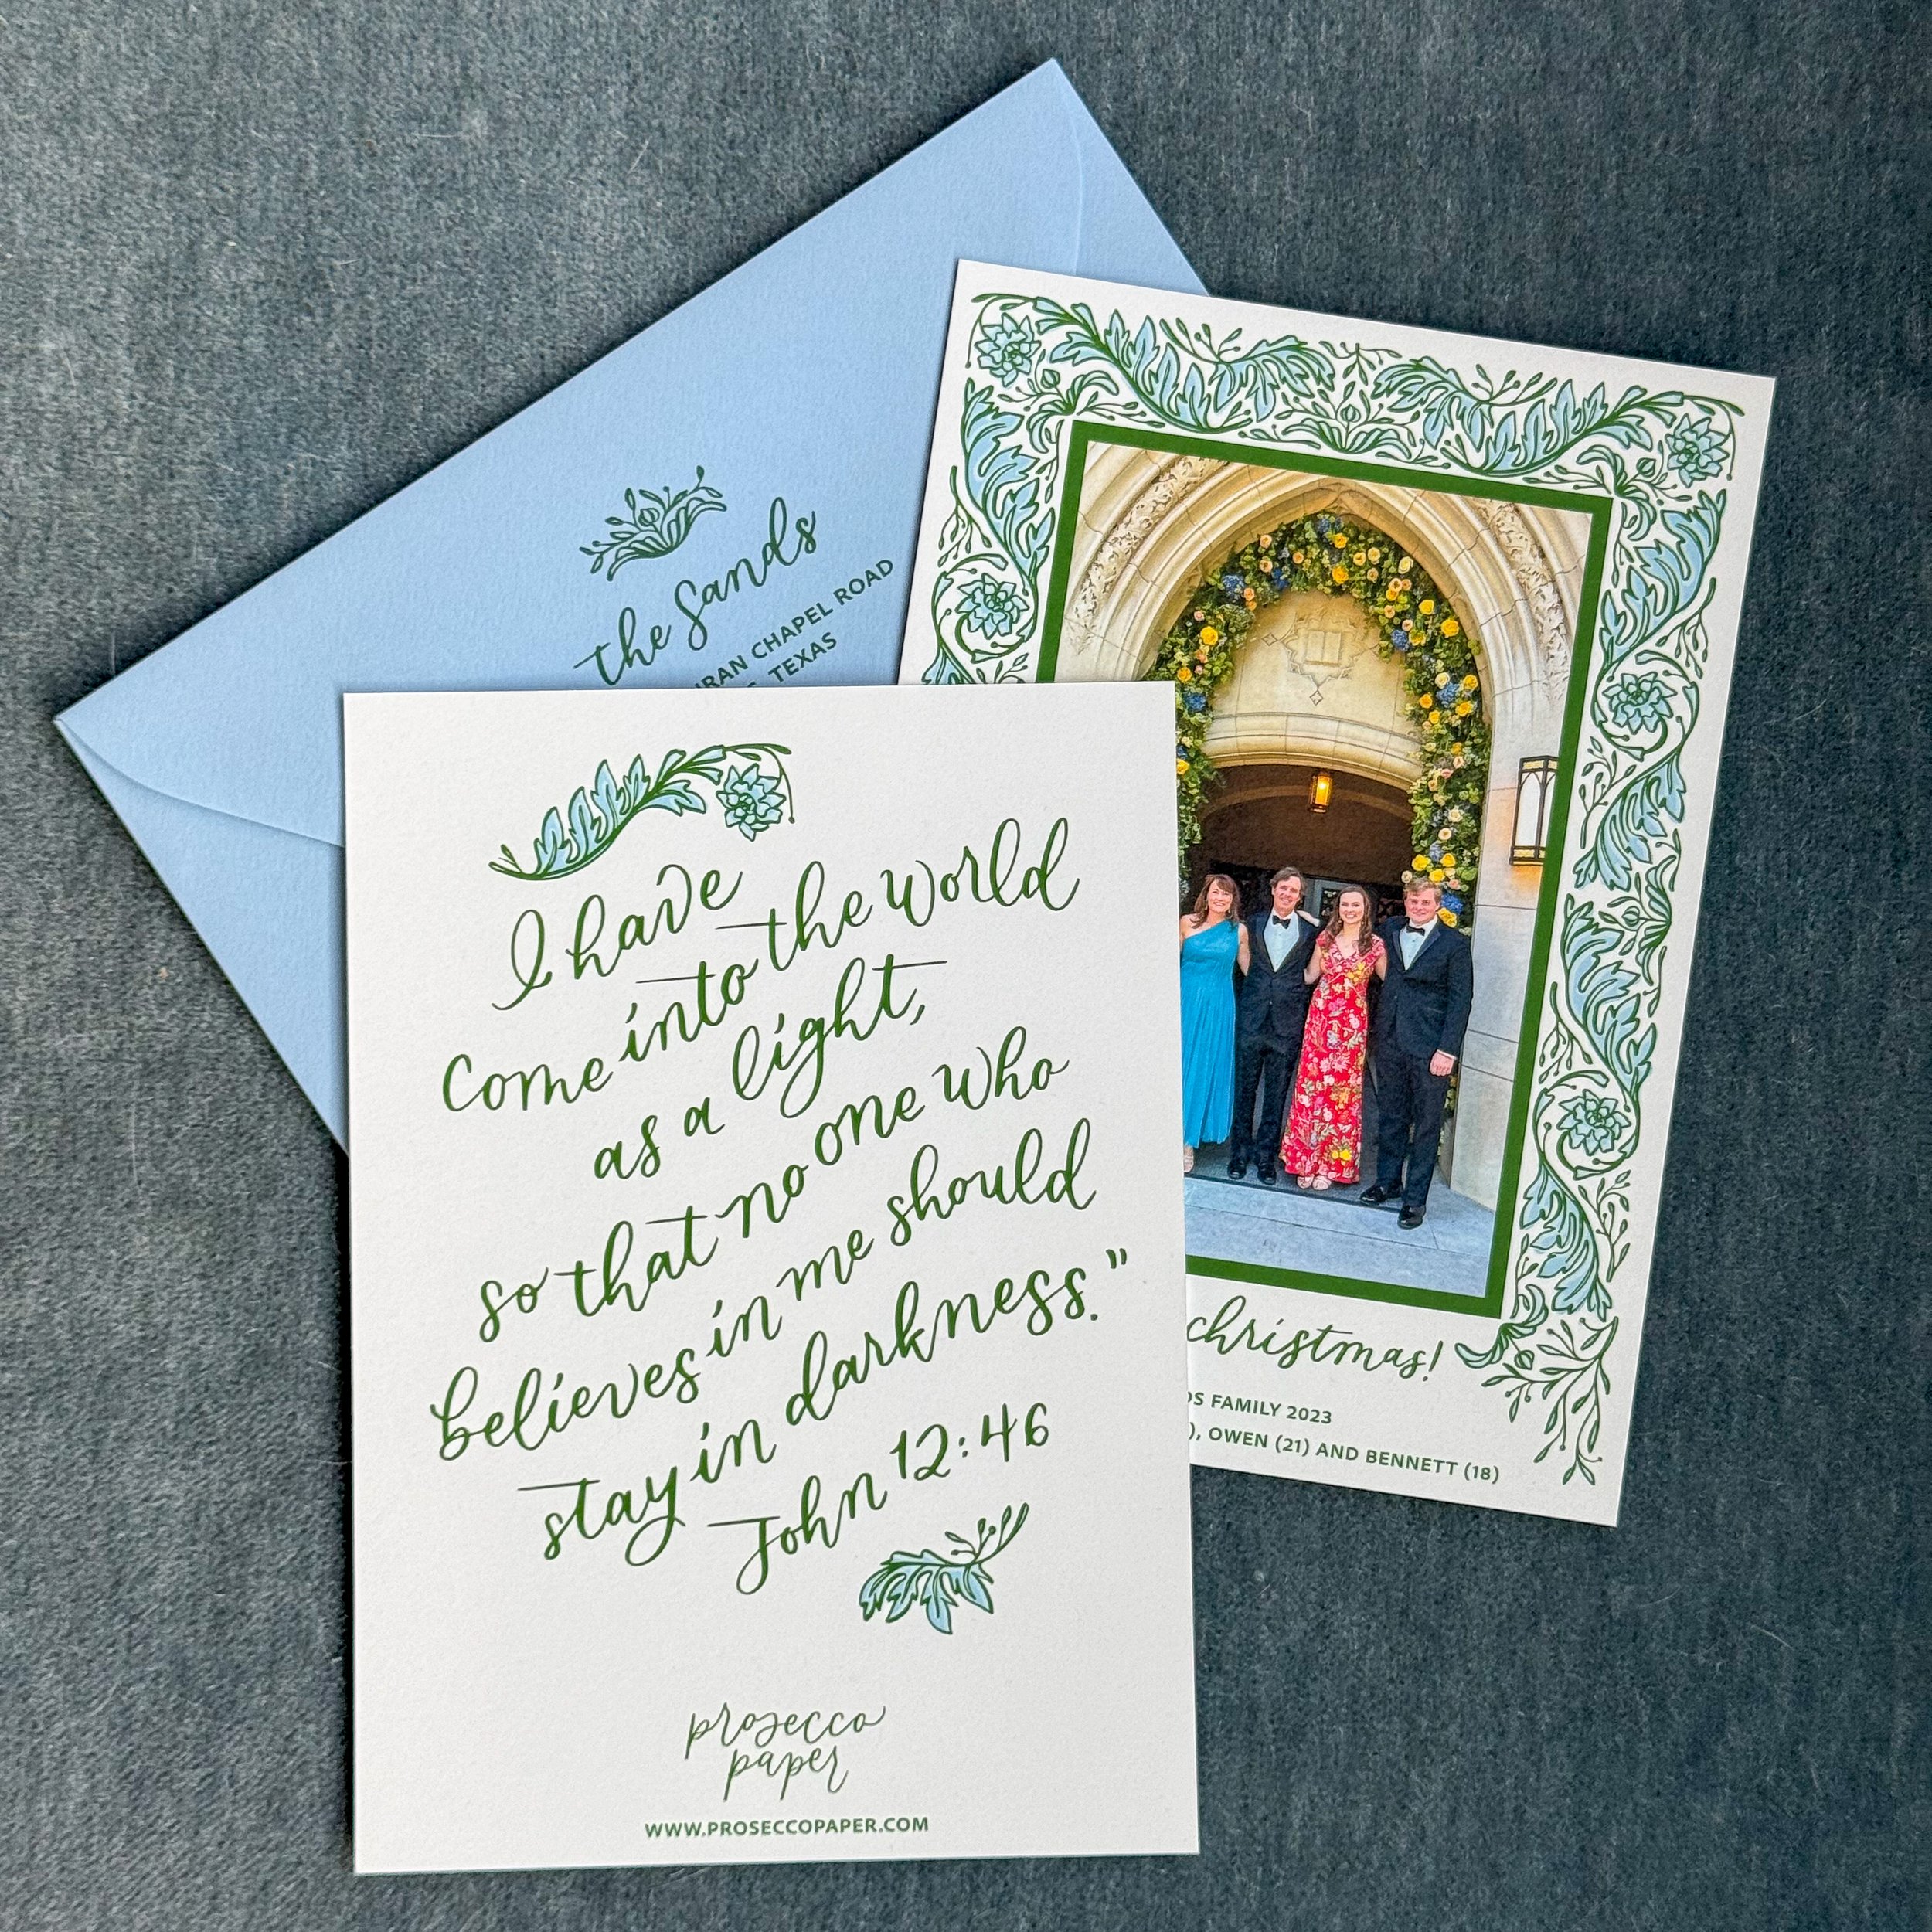 the Sands
CHAPEL ROAD
TEXAS
I have
come into the world
as a light,
so that no one who
believes in me should
stay in darkness."
John 12:46
prosecco
paper
WWW.PROSECCOPAPER.COM
christmas!
FAMILY 2023
, OWEN (21) AND BENNETT (18)